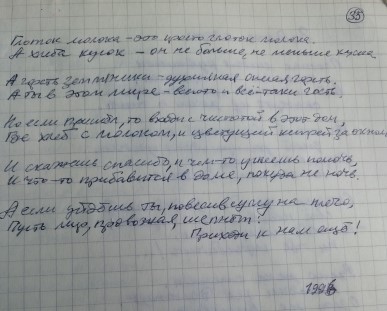 35
Глоток молока - это просто глоток молока.
А хлеба кусок - он не больше, не меньше куска
А горсть земляники - душистая алая горсть,
А ты в этом мире - всего и всего лишь гость.
Но если пришёл, то входи с чистотой в этот дом,
Где хлеб с молоком, и цветущий кипрей за окном
И скажешь спасибо, и чем-то успеешь помочь,
И что-то прибавится в доме, покуда не ночь.
А если уйдёшь ты, повесив суму на плечо,
Пусть лицо, провожая, шепнёт:
Приходи к нам ещё!
1986